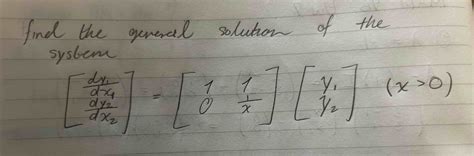 find the general solution of the
system
[dy₁/dx₁ dy₂/dx₂] = [1 1 0 1/x] [y₁ y₂] (x>0)